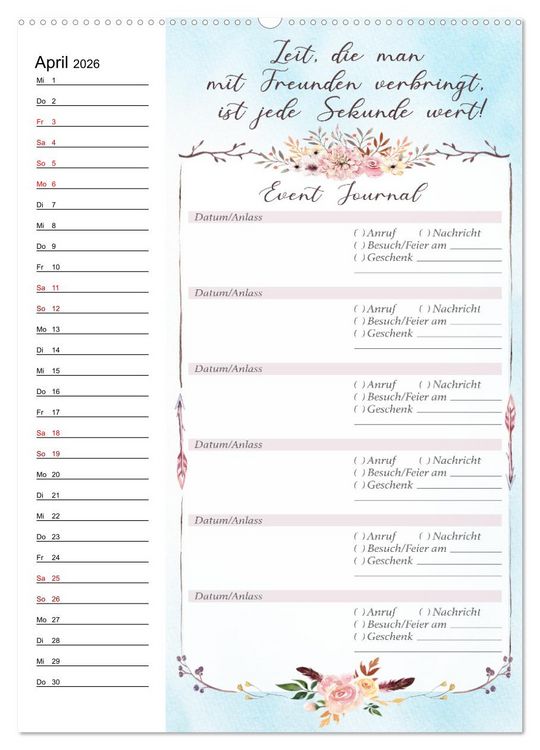 April 2026
Mi 1
Do 2
Fr 3
Sa 4
So 5
Mo 6
Di 7
Mi 8
Do 9
Fr 10
Sa 11
So 12
Mo 13
Di 14
Mi 15
Do 16
Fr 17
Sa 18
So 19
Mo 20
Di 21
Mi 22
Do 23
Fr 24
Sa 25
So 26
Mo 27
Di 28
Mi 29
Do 30
Zeit, die man
mit Freunden verbringt,
ist jede Sekunde wert!
Event Journal
Datum/Anlass
( ) Anruf ( ) Nachricht
( ) Besuch/Feier am
( ) Geschenk
Datum/Anlass
( ) Anruf ( ) Nachricht
( ) Besuch/Feier am
( ) Geschenk
Datum/Anlass
( ) Anruf ( ) Nachricht
( ) Besuch/Feier am
( ) Geschenk
Datum/Anlass
( ) Anruf ( ) Nachricht
( ) Besuch/Feier am
( ) Geschenk
Datum/Anlass
( ) Anruf ( ) Nachricht
( ) Besuch/Feier am
( ) Geschenk
Datum/Anlass
( ) Anruf ( ) Nachricht
( ) Besuch/Feier am
( ) Geschenk